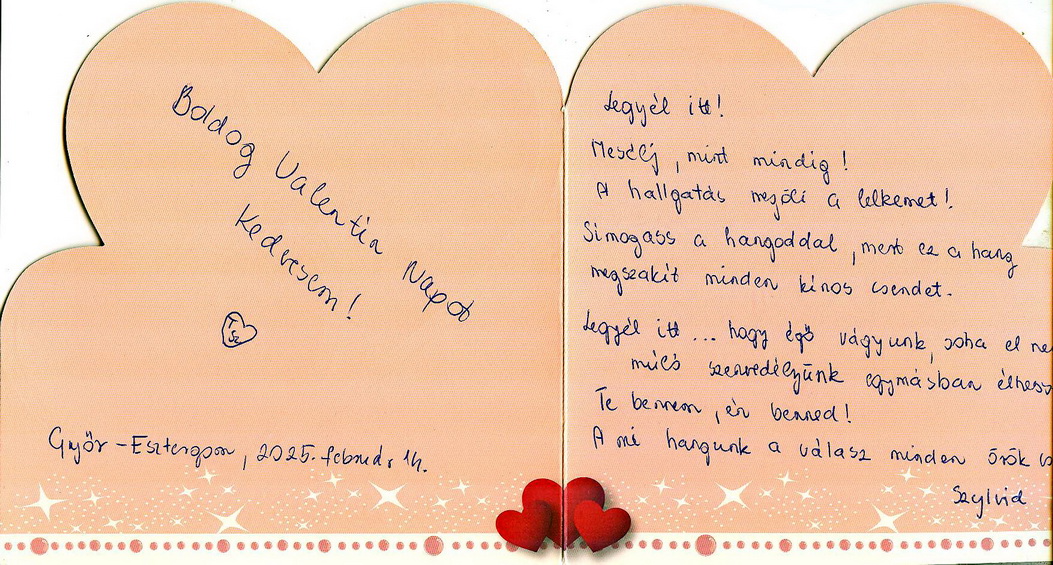 Boldog Valentin Napot
Kedvesem!
T
Sz
Győr-Esztergom, 2025. február 14.
Legyél itt!
Mesélj, mint mindig!
A hallgatás megöli a lelkemet!
Simogass a hangoddal, mert ez a hang
megszakít minden kínos csendet.
Legyél itt... hogy égő vágyunk, soha el ne
múló szenvedélyünk egymásban
Te bennem, én benned!
A mi hangunk a válasz minden örök
Szylvid